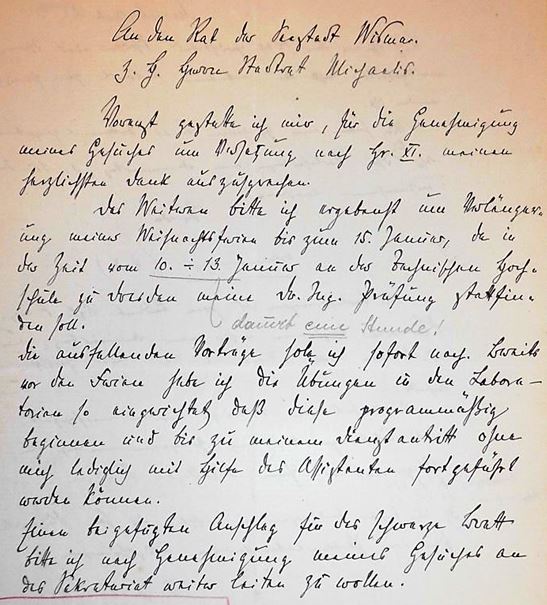 An den Rat der Seestadt Wismar.
z. H. Herrn Stadtrat Michaelis.
Vorerst gestatte ich mir, für die Genehmigung
meines Gesuches um Versetzung nach Gr. XI. meinen
herzlichsten Dank auszusprechen.
Des Weiteren bitte ich ergebenst um Verlänger-
ung meiner Weihnachtsferien bis zum 15. Januar, da in
der Zeit vom 10. ÷ 13. Januar an der Technischen Hoch-
schule zu Dresden meine Dr. Ing. Prüfung stattfin-
den soll.
dauert eine Stunde!
Die ausfallenden Vorträge hole ich sofort nach. Bereits
vor den Ferien habe ich die Übungen in den Labora-
torien so eingerichtet, daß diese programmäßig
beginnen und bis zu meinem Dienstantritt ohne
mich lediglich mit Hilfe des Assistenten fortgeführt
werden können.
Einen beigefügten Anschlag für das schwarze Brett
bitte ich nach Genehmigung meines Gesuches an
das Sekretariat weiter leiten zu wollen.